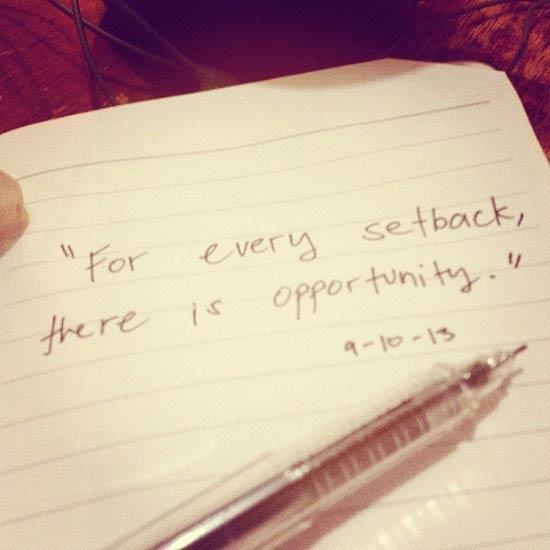 "For every setback,
there is opportunity."
9-10-13